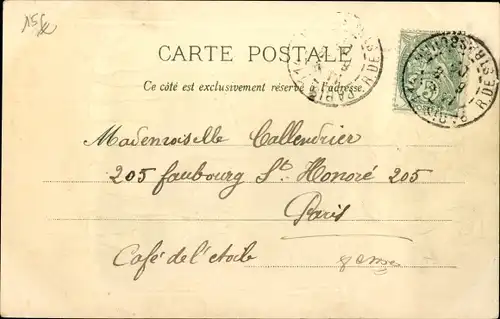 15
CARTE POSTALE
Ce côté est exclusivement réservé à l'adresse.
Mademoiselle Callendrier
205 faubourg St. Honoré 205
Paris
Café de l'étoile 8eme